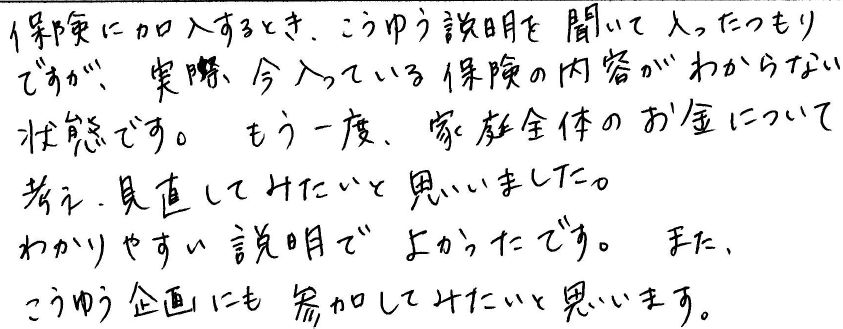 保険に加入するとき、こうゆう説明を聞いて入ったつもり
ですが、実際、今入っている保険の内容がわからない
状態です。もう一度、家庭全体のお金について
考え、見直してみたいと思いいました。
わかりやすい説明でよかったです。また、
こうゆう企画にも参加してみたいと思います。